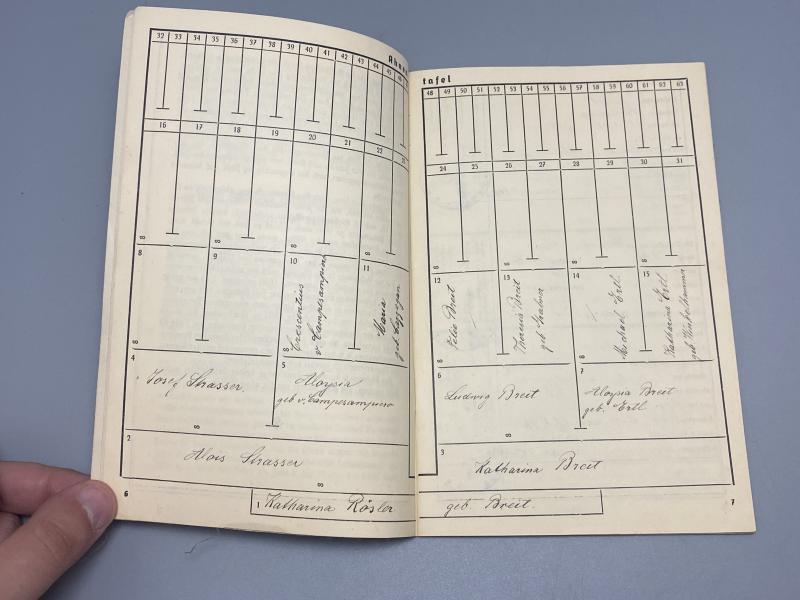 Ahnen
tafel
32 33 34 35 36 37 38 39 40 41 42 43 44 45
48 49 50 51 52 53 54 55 56 57 58 59 60 61 62 63
16 17 18 19 20 21 22 23
24 25 26 27 28 29 30 31
8 9 10 11
Crescentius
v. Campesampiero
Maria
geb.
12 13 14 15
Felix Breit
Theresia Breit
geb.
Michael Ertl.
Katharina Ertl.
geb.
4 5
Josef Strasser.
Aloysia
geb v. Campesampiero
6 7
Ludwig Breit
Aloysia Breit
geb. Ertl
2
Alois Strasser
3
Katharina Breit
1. Katharina Rösler geb. Breit.
6
7